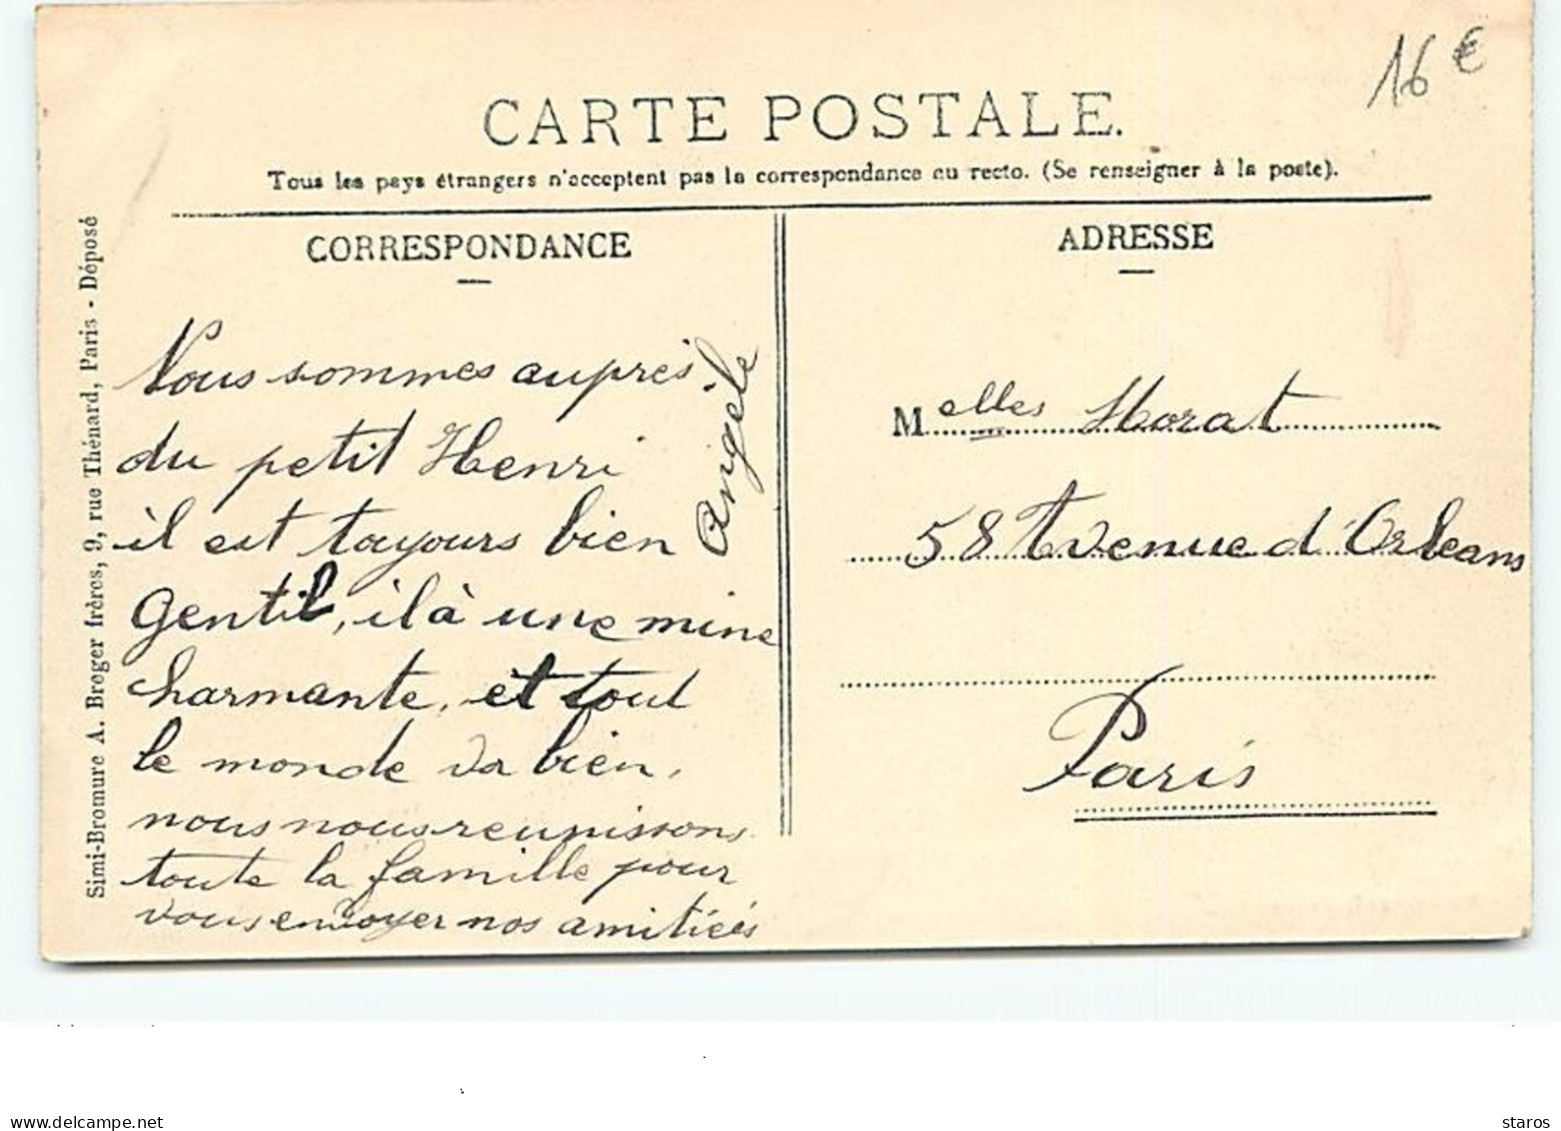 16 €
CARTE POSTALE.
Tous les pays étrangers n'acceptent pas la correspondance au recto. (Se renseigner à la poste).
CORRESPONDANCE
Nous sommes auprès
du petit Henri
il est toujours bien
gentil, il à une mine
charmante, et tout
le monde va bien,
nous nous reunissons
toute la famille pour
vous envoyer nos amitiées
Angèle
ADRESSE
Melles Morat
58 Avenue d'Orleans
Paris
Simi-Bromure A. Breger frères, 9, rue Thénard, Paris - Déposé
www.delcampe.net
staros